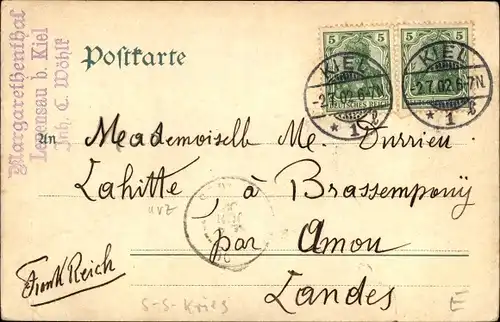 Margarethenthal
Levensau b. Kiel
Inh. C. Wöhlk
Postkarte
5 5
5 5
DEUTSCHES REICH
KIEL
-2.7.02.6-7N
* 1 ℓ
KIEL
-2.7.02.6-7N
* 1 ℓ
An Mademoiselle M. Durrieu
Lahitte, à Brassempouÿ
par Amou
Landes
FrankReich
S-S-Krieg
E